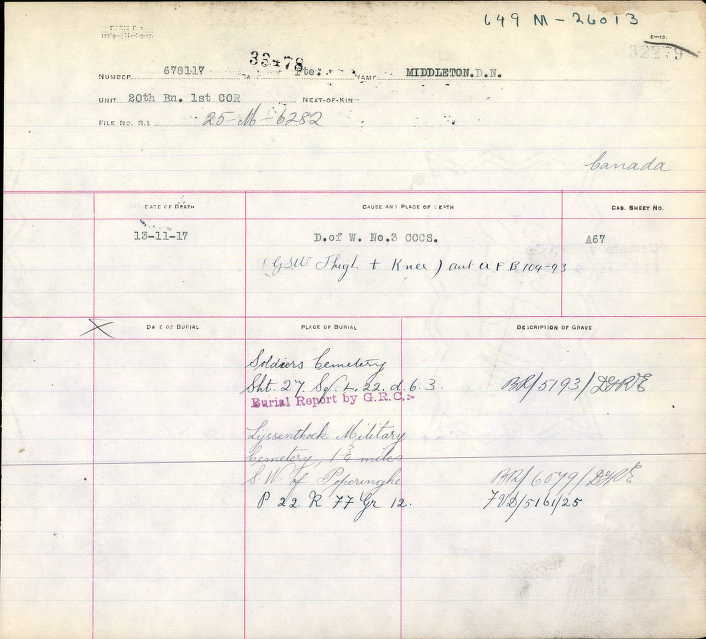 649 M-26013
32279
33478
NUMBER 678117 Pte. NAME MIDDLETON.D.N.
UNIT 20th Bn. 1st COR NEXT-OF-KIN
FILE No. 25-M-6282
Canada
DATE OF DEATH CAUSE AND PLACE OF DEATH CAS. SHEET No.
13-11-17 D.of W. No.3 COCS. A67
(GSW Thigh + Knee) auth A F B 104-93
DATE OF BURIAL PLACE OF BURIAL DESCRIPTION OF GRAVE
Soldiers Cemetery
Sht. 27. Sq. L. 22. d. 6. 3. BR/5193/DGR&E
Burial Report by G.R.C:-
Lyssenthock Military
Cemetery, 1½ miles
S.W. of Poperinghe BR/6079/DGR&E
P 22 R 77 Gr 12. FVD/5161/25